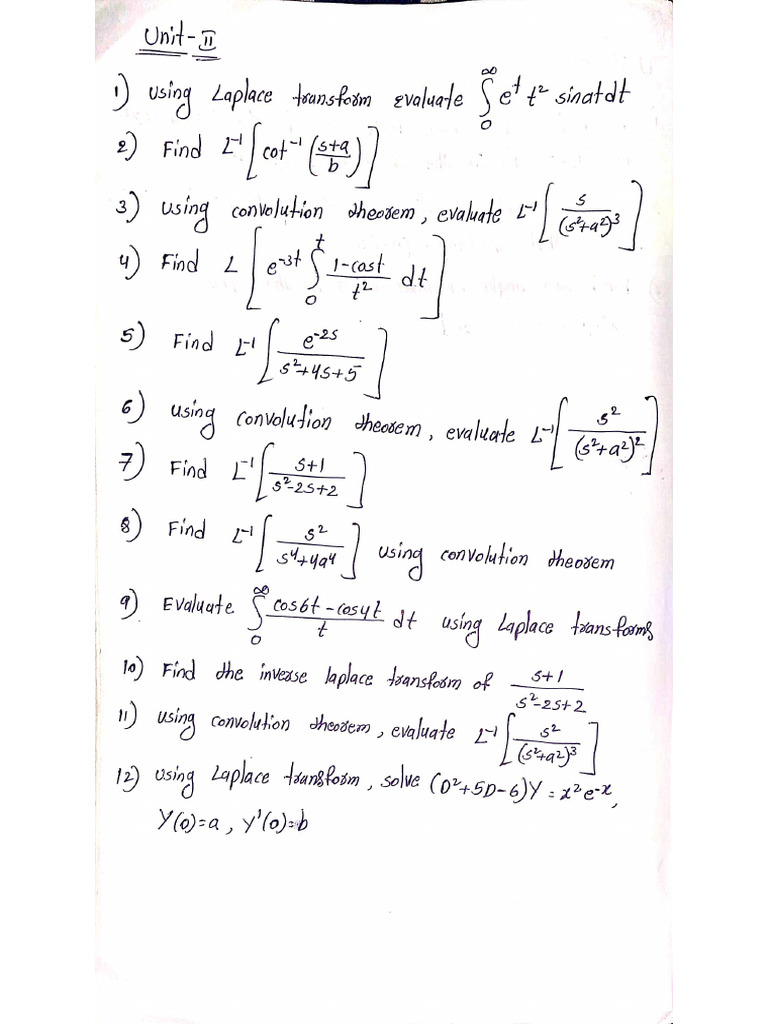 Unit-II
1) Using Laplace transform evaluate ∫₀^∞ e^t t² sinat dt
2) Find L⁻¹[cot⁻¹((s+a)/b)]
3) Using convolution theorem, evaluate L⁻¹[s/(s²+a²)³]
4) Find L[e^(-3t) ∫₀^t (1-cost)/t² dt]
5) Find L⁻¹[e^(-2s)/(s²+4s+5)]
6) Using convolution theorem, evaluate L⁻¹[s²/(s²+a²)²]
7) Find L⁻¹[(s+1)/(s²-2s+2)]
8) Find L⁻¹[s²/(s⁴+4a⁴)] using convolution theorem
9) Evaluate ∫₀^∞ (cos6t-cos4t)/t dt using Laplace transforms
10) Find the inverse laplace transform of (s+1)/(s²-2s+2)
11) Using convolution theorem, evaluate L⁻¹[s²/(s²+a²)³]
12) Using Laplace transform, solve (D²+5D-6)Y = x²e^(-x),
Y(0)=a, Y'(0)=b